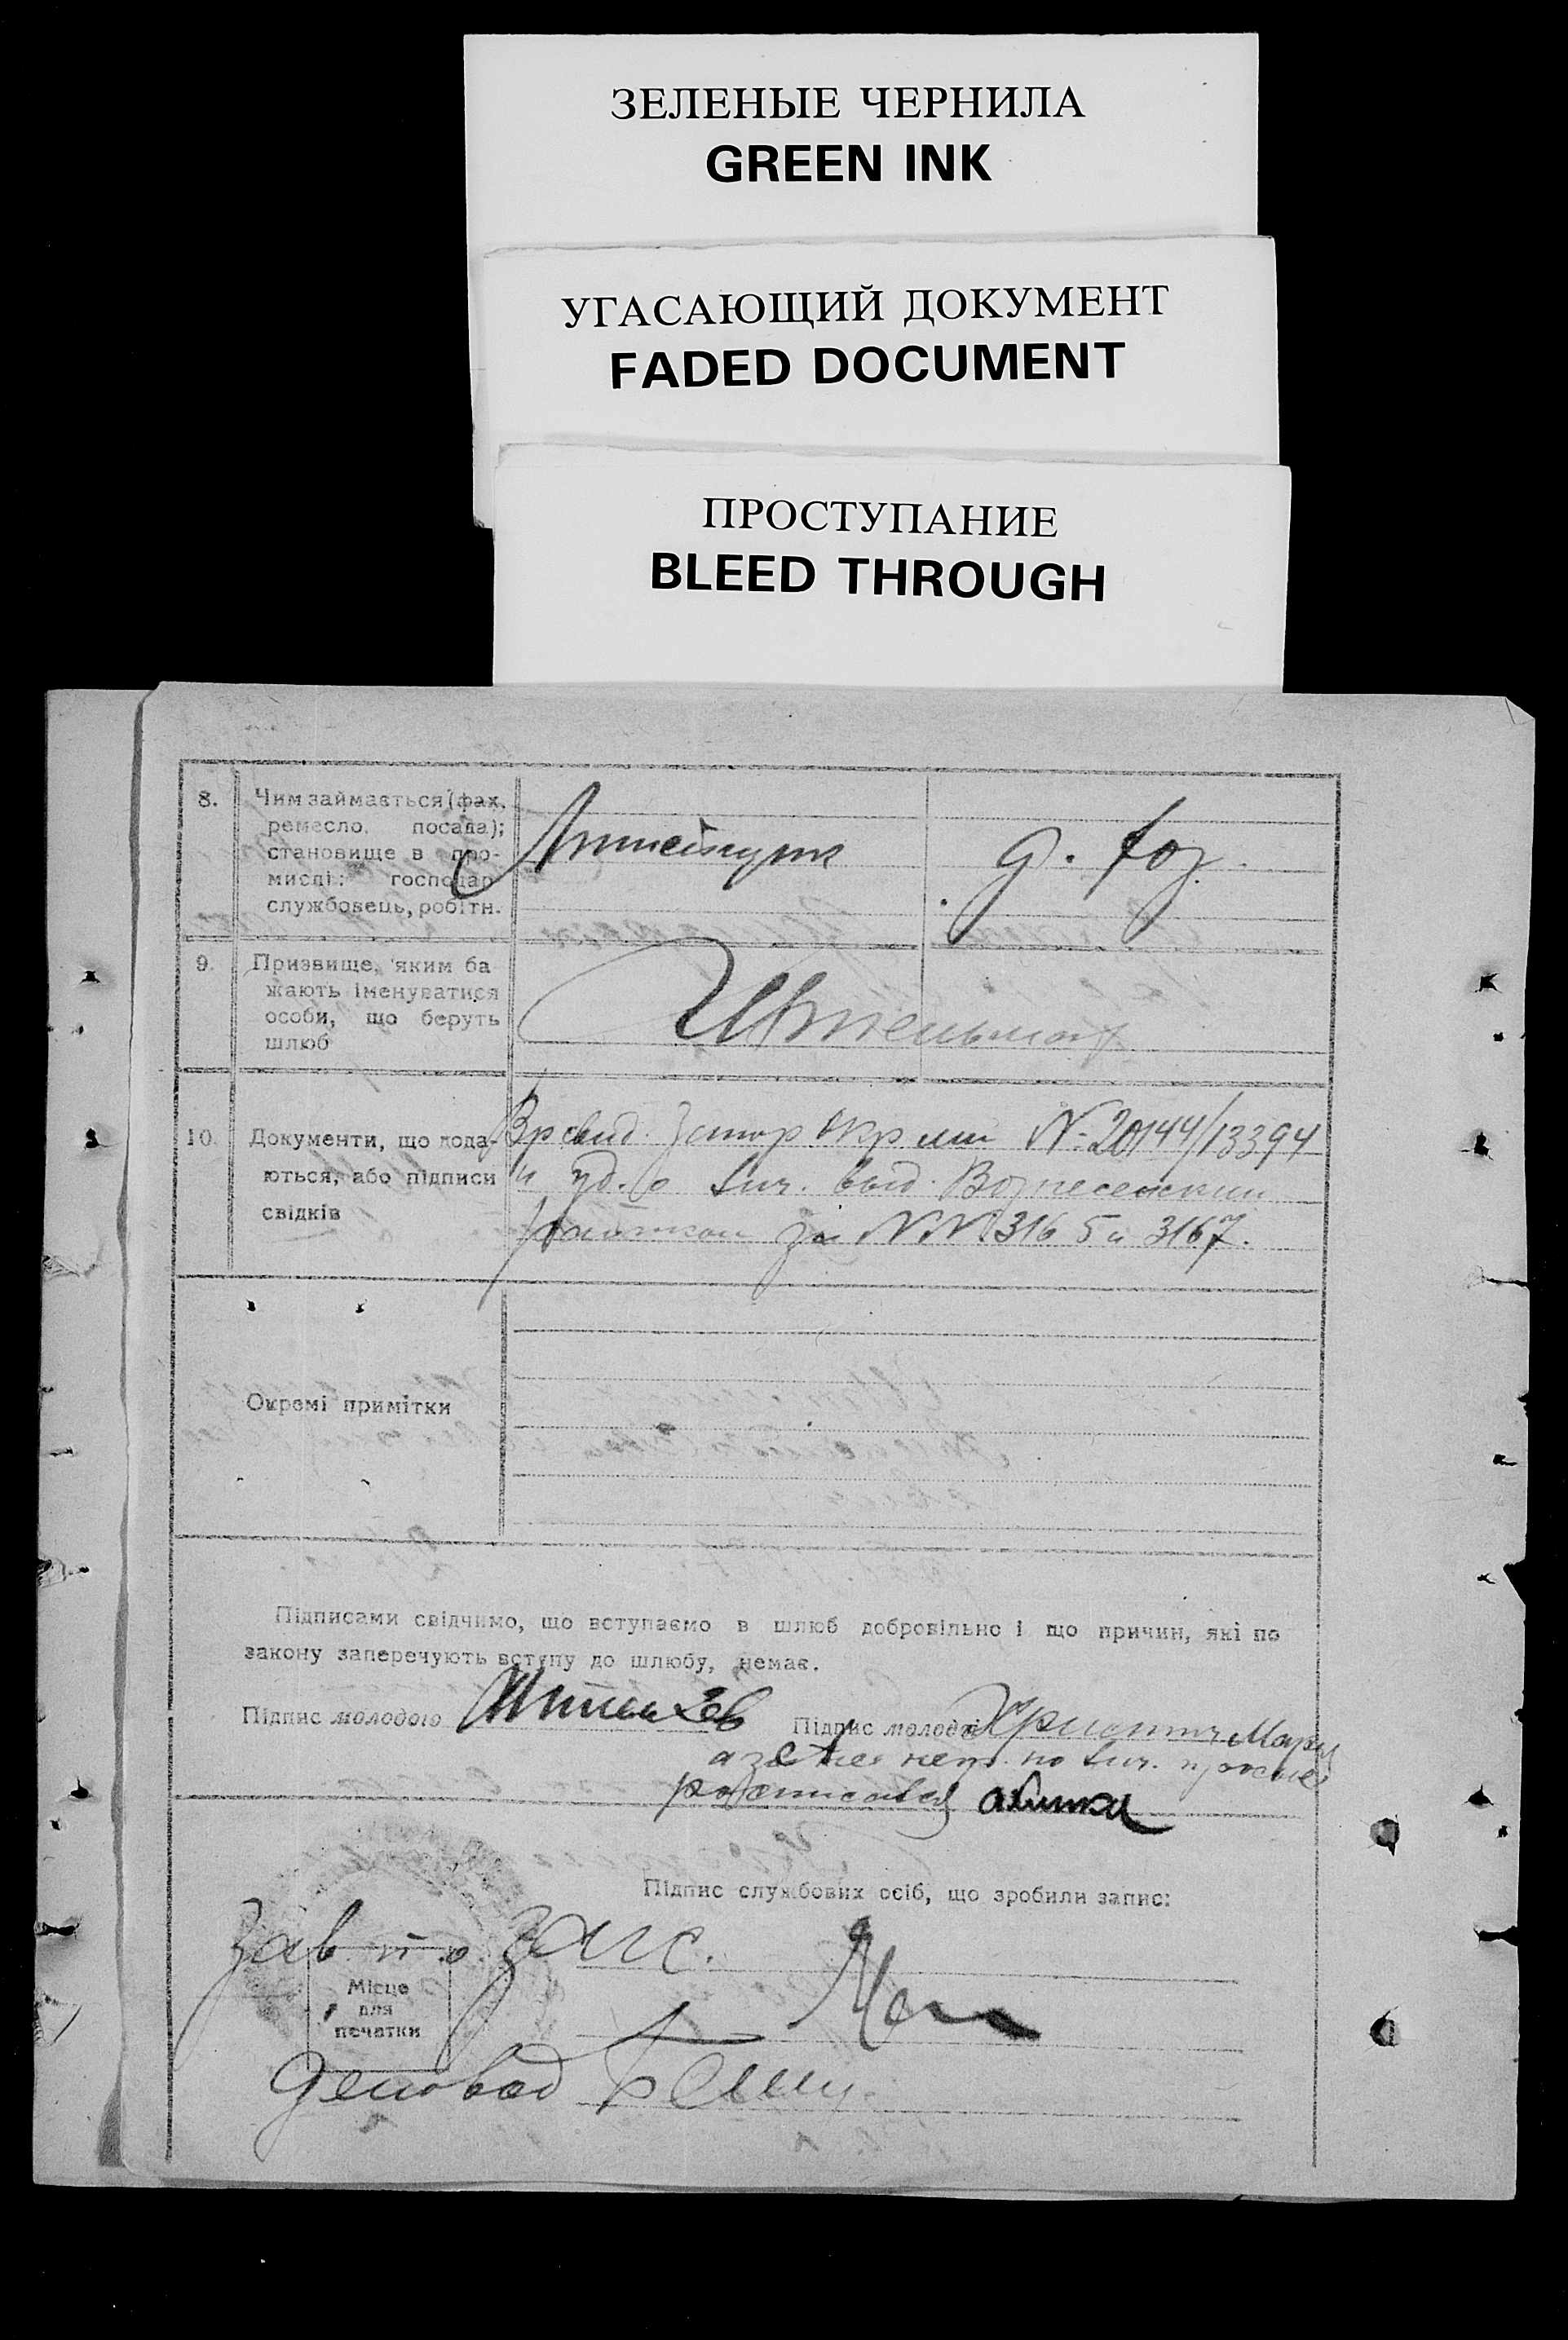 ЗЕЛЕНЫЕ ЧЕРНИЛА
GREEN INK
УГАСАЮЩИЙ ДОКУМЕНТ
FADED DOCUMENT
ПРОСТУПАНИЕ
BLEED THROUGH
8. Чим займається (фах,
ремесло, посада);
становище в про-
мислі: господар
службовець, робітн.
д. хоз.
9. Призвище, яким ба
жають іменуватися
особи, що беруть
шлюб
10. Документи, що дода-
ються, або підписи
свідків
Вр свид. Запор Окр мил № 20144/13394
и уд. о лич. выд. Вознесенким
за №№ 3165 и 3167.
Окремі примітки
Підписами свідчимо, що вступаємо в шлюб добровільно і що причин, які по
закону заперечують вступу до шлюбу, немає.
Підпис молодого
Підпис молодої Мария
а за нее негр. по лич. просьбе
расписался
Підпис службових осіб, що зробили запис:
Зав п о Загс.
Місце
для
печатки
Деловод